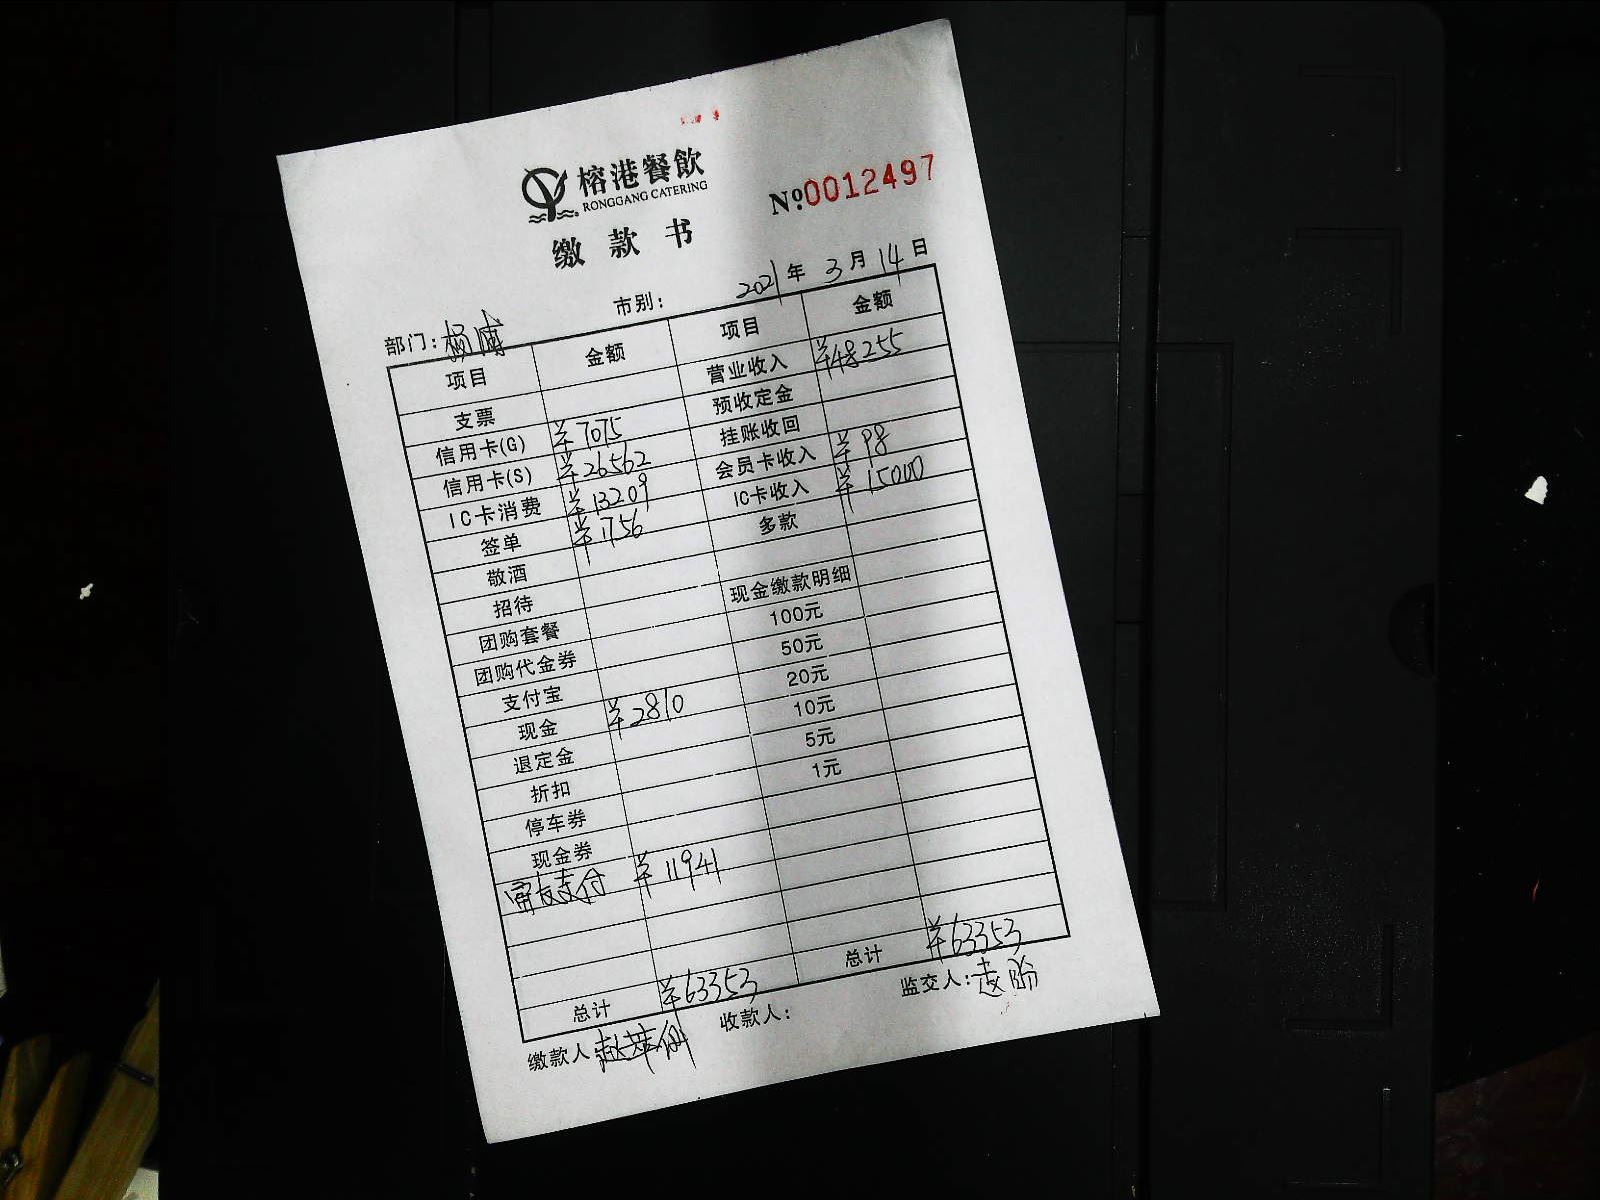 榕港餐飲
RONGGANG CATERING
缴款书
№0012497
部门:杨浦 市别: 2021年3月14日
项目 金额 项目 金额
支票 营业收入 ¥48255
信用卡(G) ¥7075 预收定金
信用卡(S) ¥26562 挂账收回
IC卡消费 ¥13209 会员卡收入 ¥98
签单 ¥1756 IC卡收入 ¥15000
敬酒 多款
招待
团购套餐 现金缴款明细
团购代金券 100元
支付宝 50元
现金 ¥2810 20元
退定金 10元
折扣 5元
停车券 1元
现金券
富友支付 ¥11941
总计 ¥63353 总计 ¥63353
缴款人 收款人: 监交人: